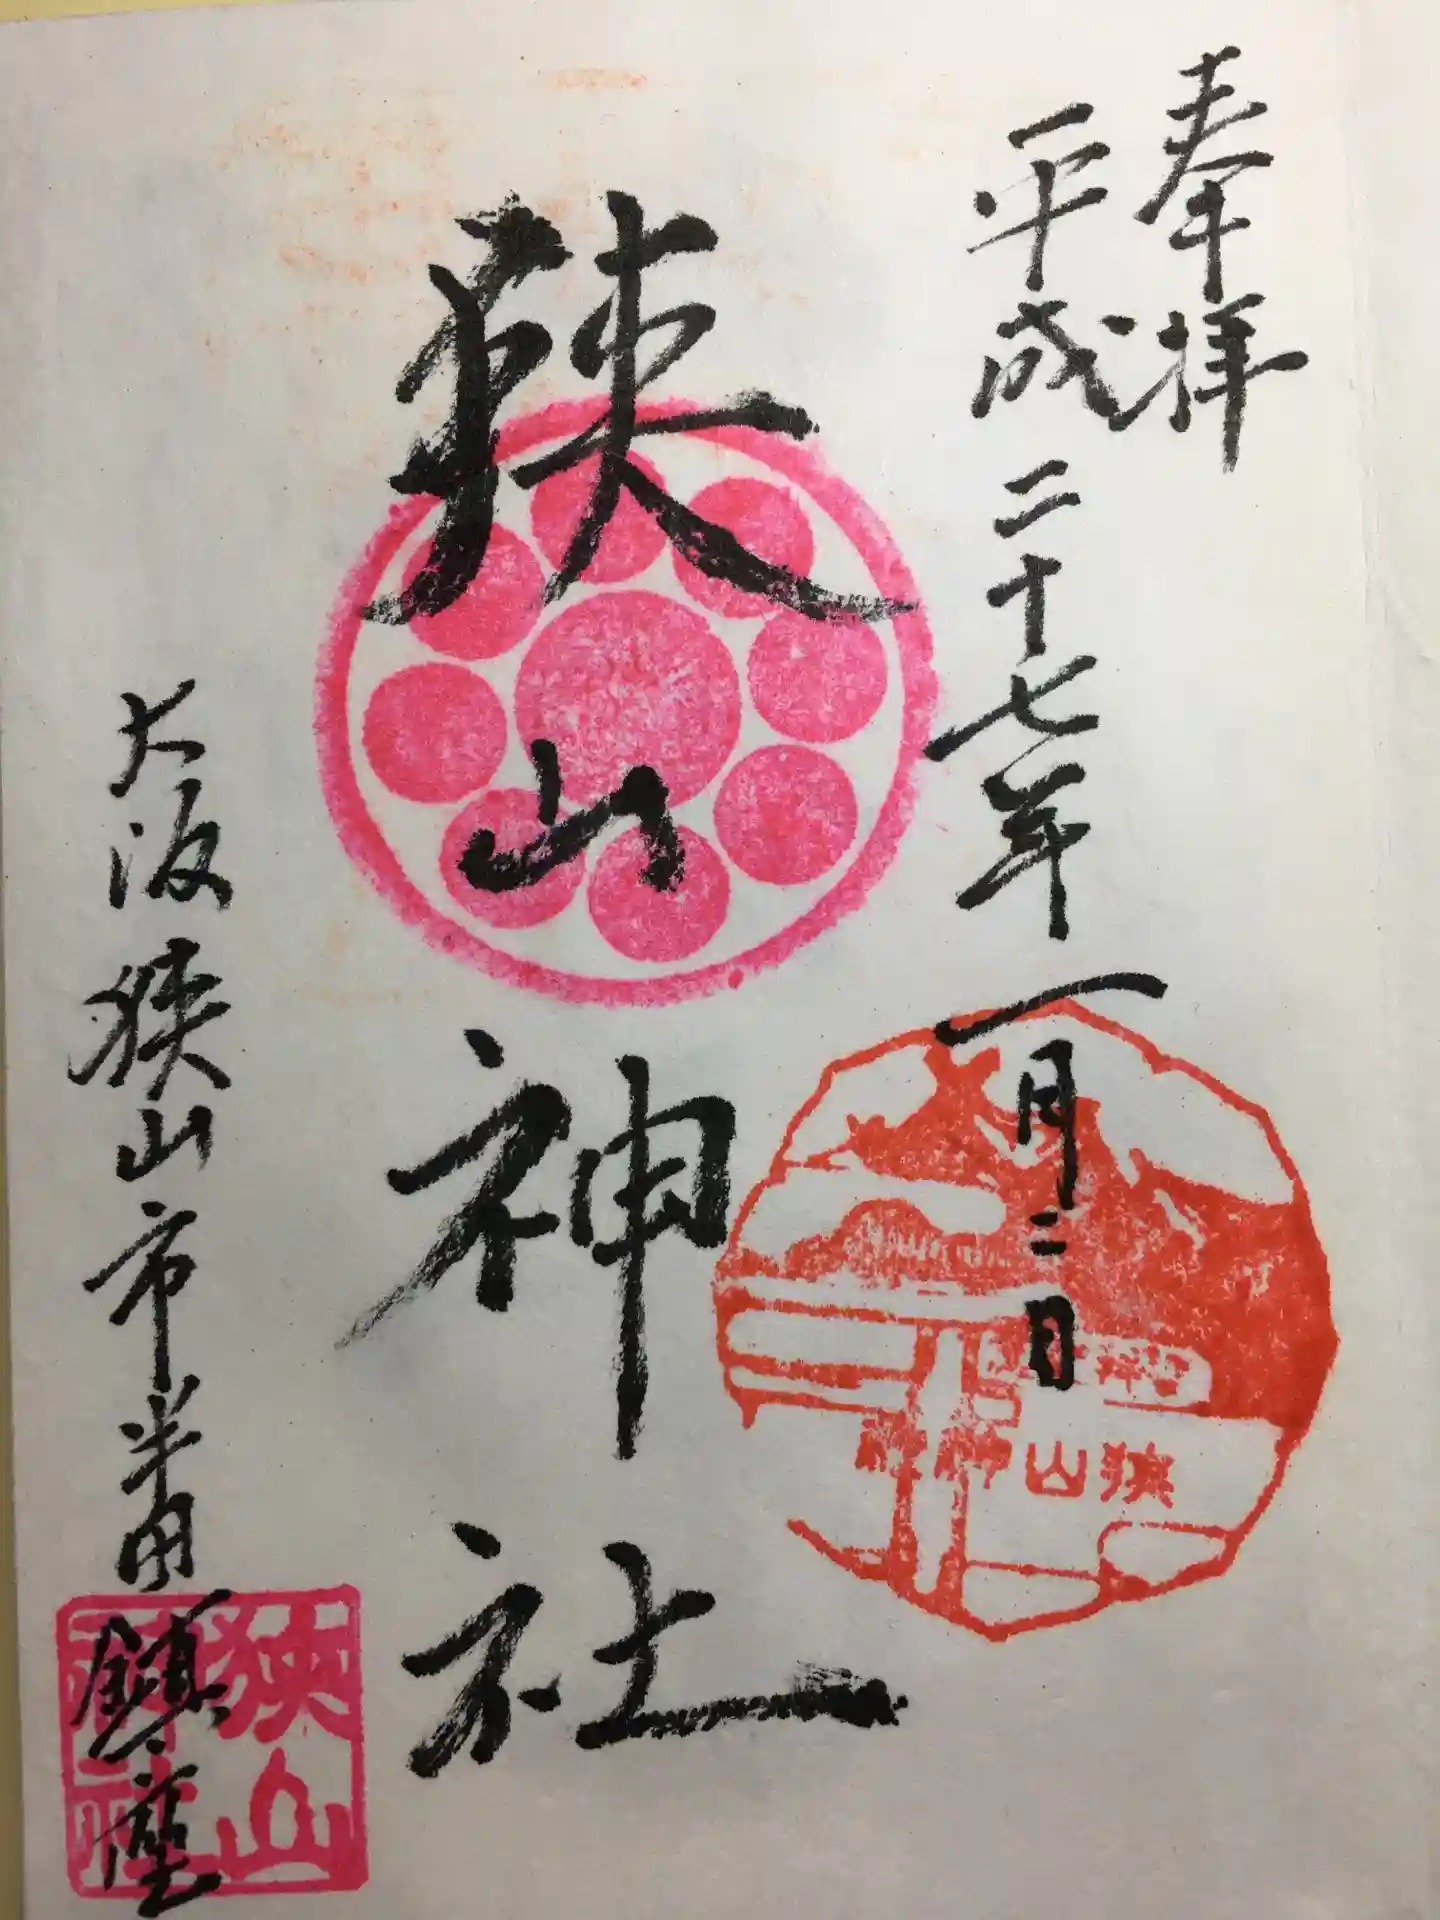 奉拝
平成二十七年一月二日
狭山神社
狭山神社
大阪狭山市半田鎮座
狭山
神社